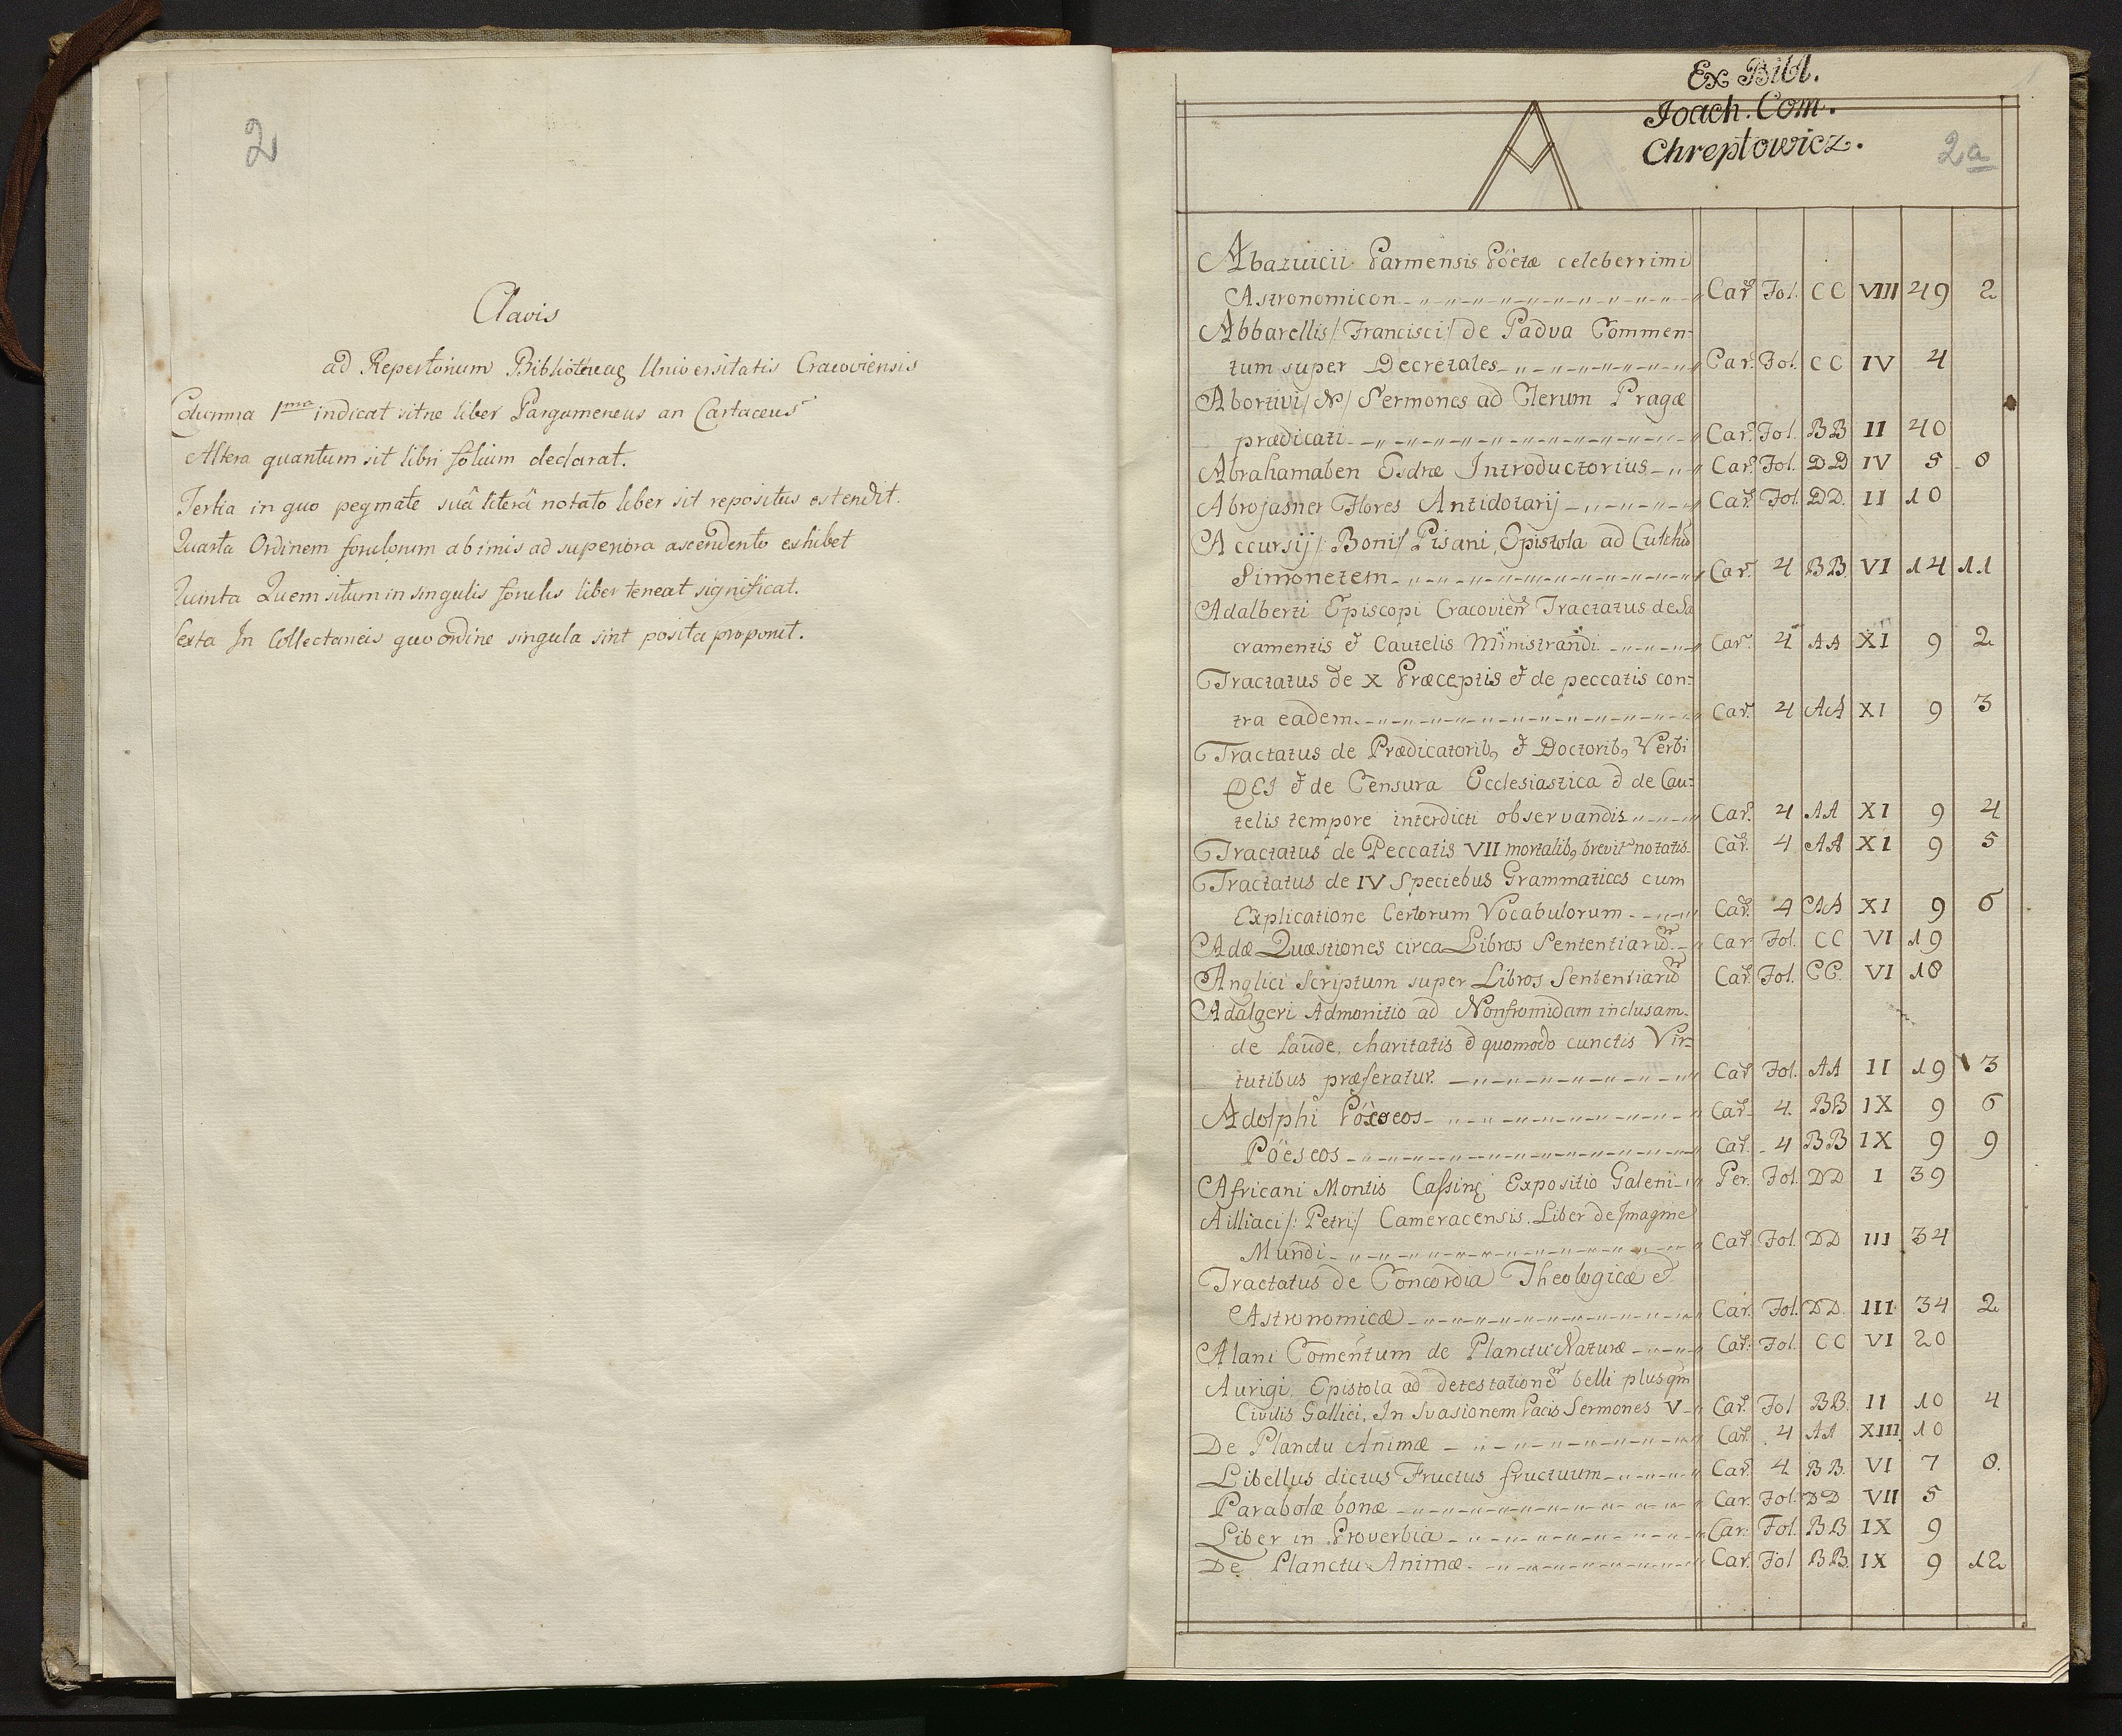 2
Clavis
ad Repertorium Bibliothecae Universitatis Cracoviensis
Columna 1ma indicat sitne liber Pargameneus an Cartaceus
Altera quantum sit libri folium declarat.
Tertia in quo pegmate suâ literâ notato liber sit repositus ostendit.
Quarta Ordinem forulorum ab imis ad superiora ascendento exhibet
Quinta Quem situm in singulis forulis liber teneat significat.
Sexta In Collectaneis quo ordine singula sint posita proponit.
Ex Bibl.
Joach. Com.
Chreptowicz.
2a
A
Abazuicii Parmensis Pöetæ celeberrimi
Astronomicon Car. Fol. CC VIII 49 2
Abbarellis /: Francisci / de Padva Commen-
tum super Decretales Car. Fol. CC IV 4
Abortivi /: N / Sermones ad Clerum Pragæ
prædicati Car. Fol. BB II 40
Abrahamaben Esdræ Introductorius Car. Fol. DD IV 5 8
Abrojasner Flores Antidotarij Car. Fol. DD. II 10
Accursij /: Boni / Pisani Epistola ad
Simonetem Car. 4 BB VI 14 11
Adalberti Episcopi Cracovien Tractatus de Sa
cramentis et Cautelis Ministrandi Car. 4 AA XI 9 2
Tractatus de X Præceptis et de peccatis con-
tra eadem Car. 4 AA XI 9 3
Tractatus de Prædicatorib9 et Doctorib9 Verbi
DEI et de Censura Ecclesiastica et de Cau-
telis tempore interdicti observandis Car. 4 AA XI 9 4
Tractatus de Peccatis VII mortalib9 brevit notatis Car. 4 AA XI 9 5
Tractatus de IV Speciebus Grammatices cum
Explicatione Certorum Vocabulorum Car. 4 AA XI 9 6
Adæ Quæstiones circa Libros Sententiarum Car Fol. CC VI 19
Anglici Scriptum super Libros Sententiarum Car. Fol. CC. VI 18
Adalgeri Admonitio ad Nonfromidam inclusam
de laude, charitatis et quomodo cunctis Vir-
tutibus præferatur. Car Fol. AA II 19 3
Adolphi Pöeseos Car. 4. BB IX 9 6
Pöeseos Car. 4 BB IX 9 9
Africani Montis Cassinę Expositio Galeni Per. Fol. DD I 39
Ailliaci /: Petri / Cameracensis Liber de Imagine
Mundi Car. Fol. DD III 34
Tractatus de Concordia Theologicæ et
Astronomicæ Car. Fol. DD. III 34 2
Alani Comentum de Planctu Naturæ Car. Fol CC VI 20
Aurigi. Epistola ad detestationem belli plusqm
Civilis Gallici, In Svasionem Pacis Sermones V Car. Fol BB. II 10 4
De Planctu Animæ Car. 4 AA XIII 10
Libellus dictus Fructus fructuum Car. 4 BB. VI 7 8.
Parabolæ bonæ Car. Fol. DD VII 5
Liber in Proverbia Car. Fol. BB IX 9
De Planctu Animæ Car. Fol BB. IX 9 12